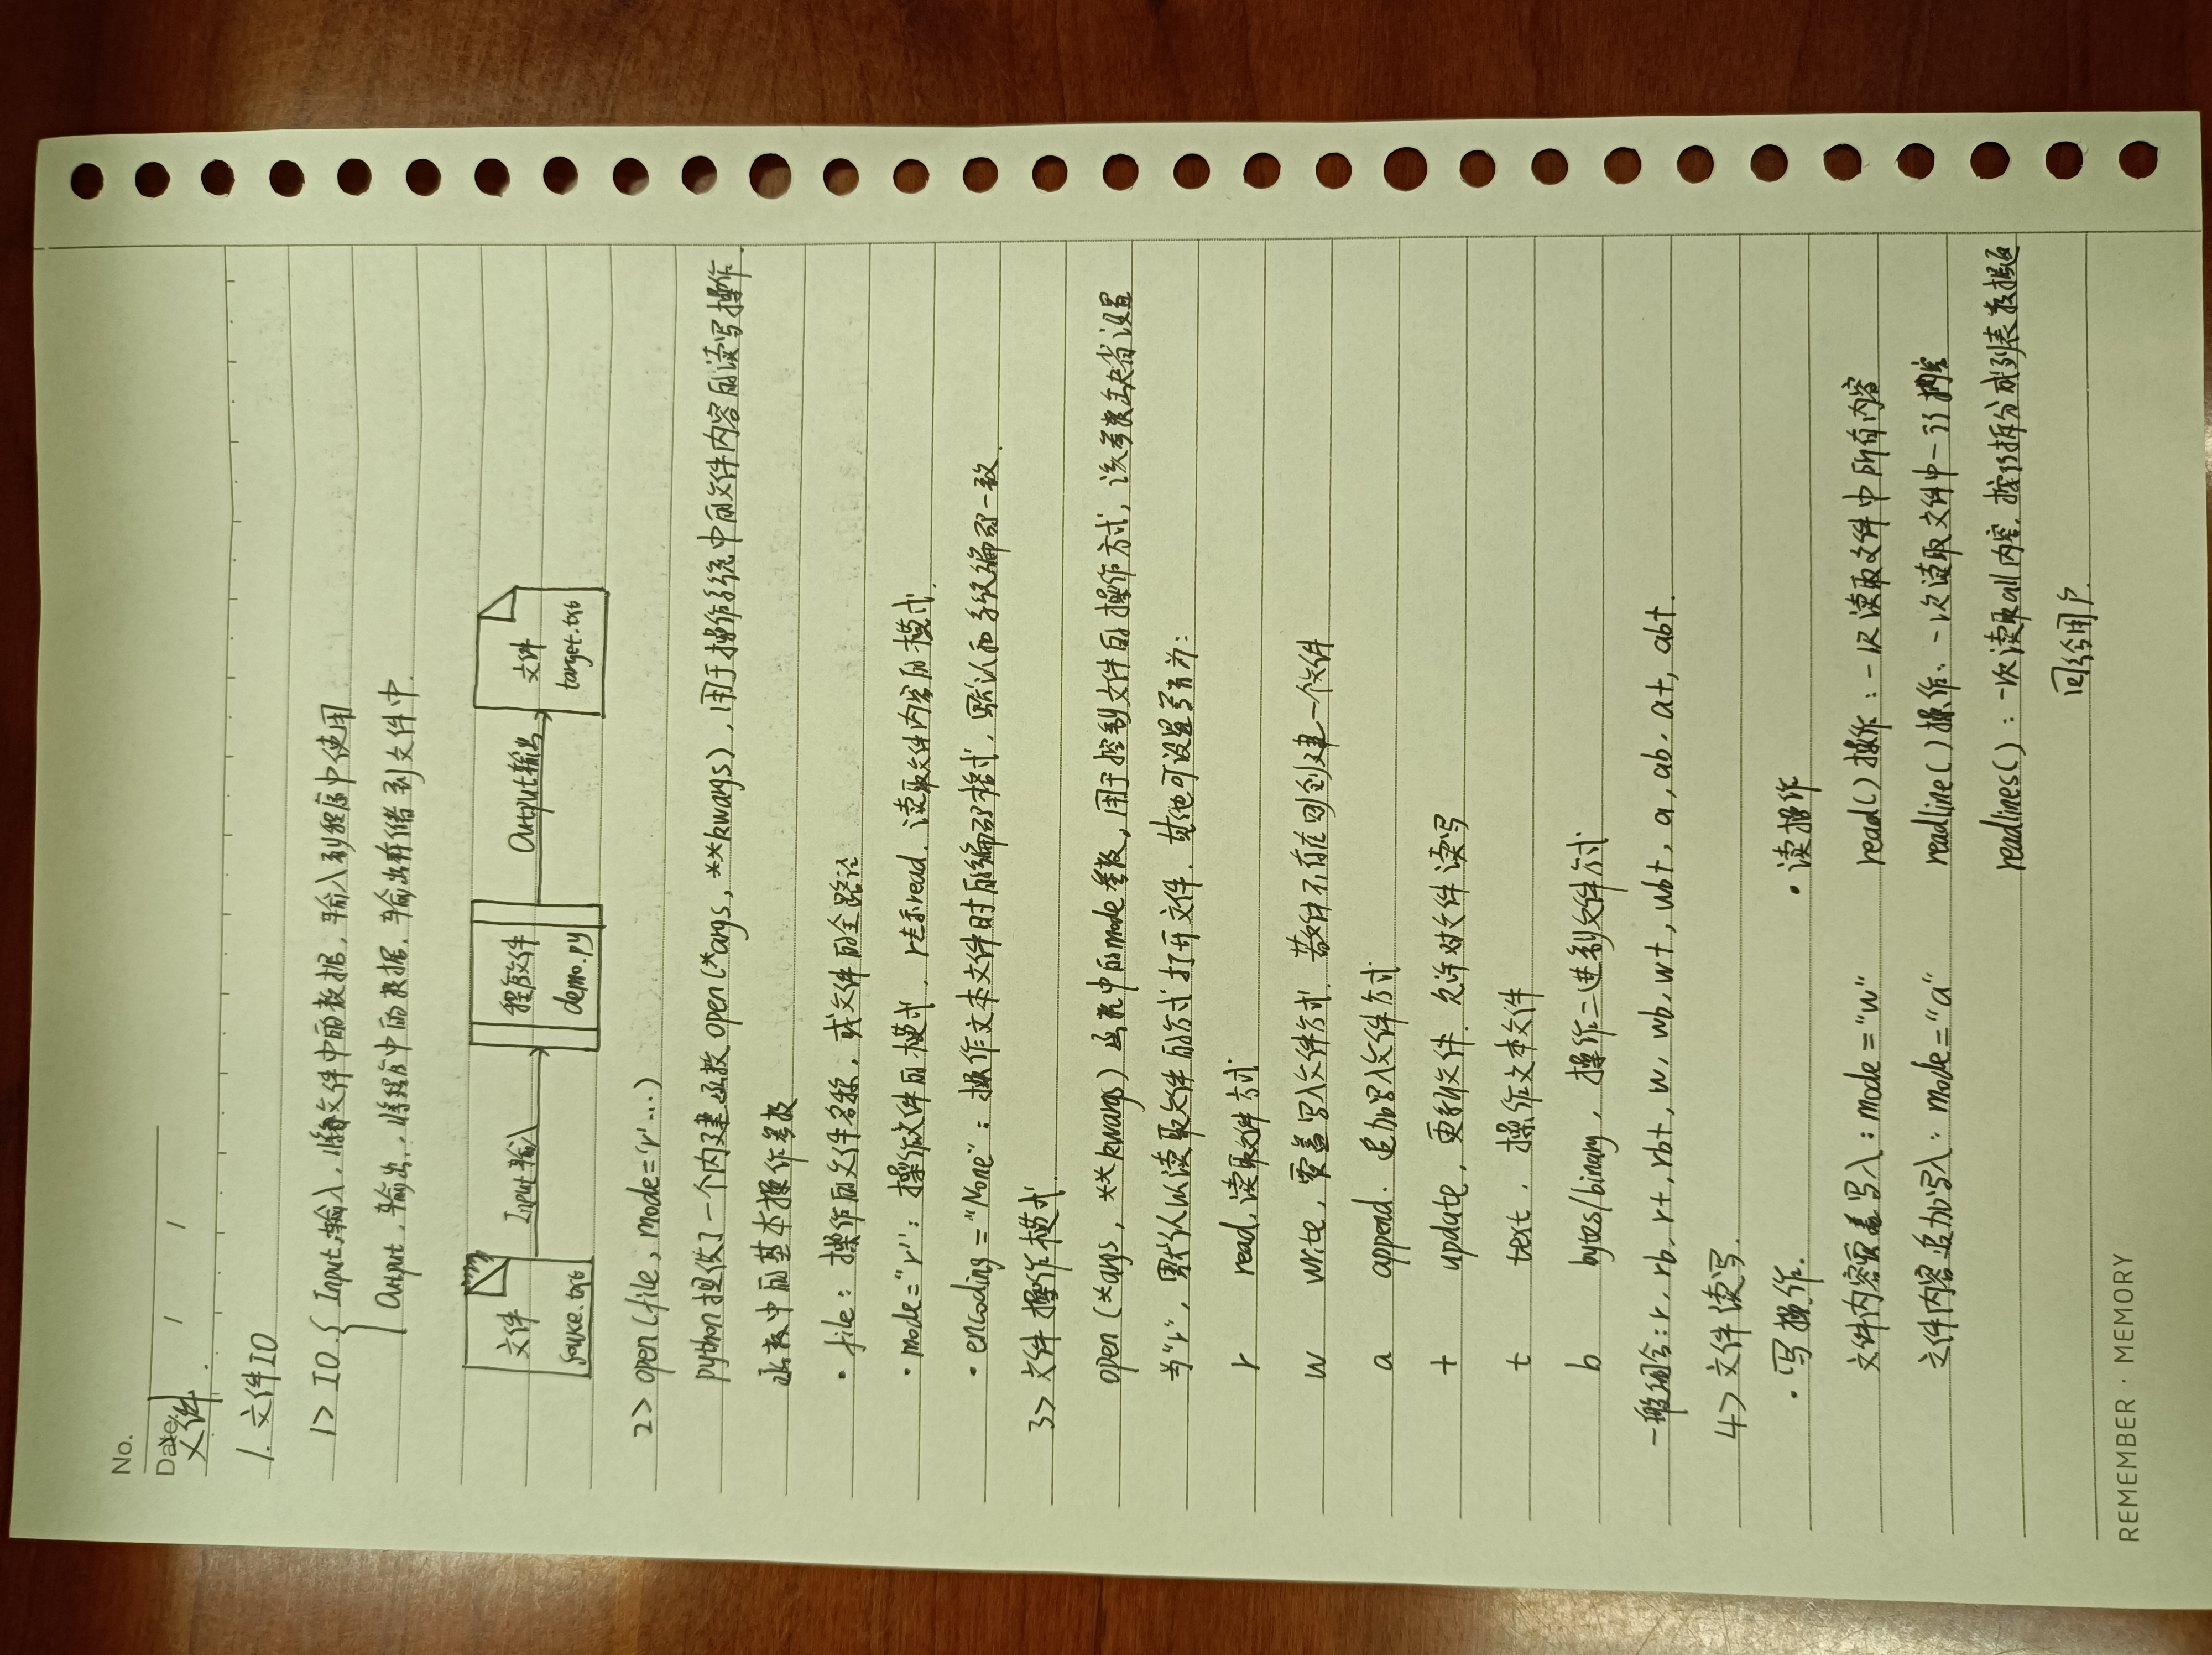 No.
Date / /
文件.
1. 文件IO
1> IO. { Input, 输入, 将文件中的数据, 输入到程序中使用
Output, 输出, 将程序中的数据, 输出存储到文件中.
文件 Input输入 程序文件 Output输出 文件
souke.txt demo.py target.txt
2> open(file, mode='r'...)
python提供了一个内建函数open(*args, **kwargs), 用于操作系统中的文件内容的读写操作.
函数中的基本操作参数
· file: 操作的文件名称, 或文件的全路径
· mode="r": 操作文件的模式, r表示read, 读取文件内容的模式.
· encoding="None": 操作文本文件时的编码格式, 默认和系统编码一致.
3> 文件操作模式.
open(*args, **kwargs)函数中的mode参数, 用于控制文件的操作方式, 该参数缺省设置
为"r", 默认以读取文件的方式打开文件. 其他可设置字符为:
r read, 读取文件方式
w write, 覆盖写入文件方式. 若文件不存在可创建一个文件
a append. 追加写入文件方式
+ update, 更新文件. 允许对文件读写
t text, 操作文本文件
b bytes/binary, 操作二进制文件方式
一般组合: r, rb, rt, rbt, w, wb, wt, wbt, a, ab, at, abt.
4> 文件读写.
· 写操作. · 读操作
文件内容覆盖写入: mode="w" read()操作: 一次读取文件中所有内容
文件内容追加写入: mode="a" readline()操作: 一次读取文件中一行内容
readlines(): 一次读取all内容, 按行拆分成列表数据返
回给用户.
REMEMBER · MEMORY